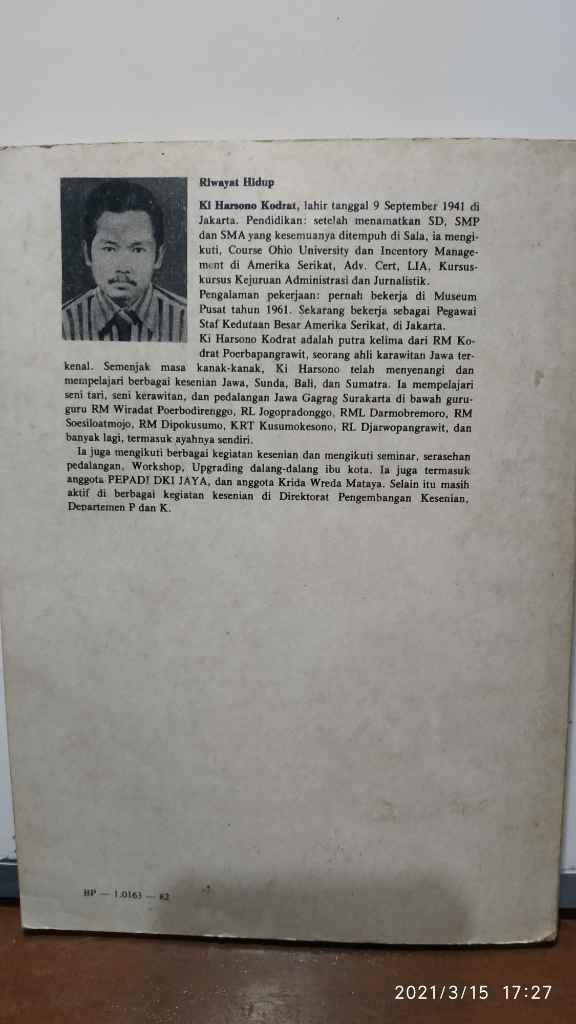 Riwayat Hidup
Ki Harsono Kodrat, lahir tanggal 9 September 1941 di
Jakarta. Pendidikan: setelah menamatkan SD, SMP
dan SMA yang kesemuanya ditempuh di Sala, ia mengi-
kuti, Course Ohio University dan Incentory Manage-
ment di Amerika Serikat, Adv. Cert, LIA, Kursus-
kursus Kejuruan Administrasi dan Jurnalistik.
Pengalaman pekerjaan: pernah bekerja di Museum
Pusat tahun 1961. Sekarang bekerja sebagai Pegawai
Staf Kedutaan Besar Amerika Serikat, di Jakarta.
Ki Harsono Kodrat adalah putra kelima dari RM Ko-
drat Poerbapangrawit, seorang ahli karawitan Jawa ter-
kenal. Semenjak masa kanak-kanak, Ki Harsono telah menyenangi dan
mempelajari berbagai kesenian Jawa, Sunda, Bali, dan Sumatra. Ia mempelajari
seni tari, seni kerawitan, dan pedalangan Jawa Gagrag Surakarta di bawah guru-
guru RM Wiradat Poerbodirenggo, RL Jogopradonggo, RML Darmobremoro, RM
Soesiloatmojo, RM Dipokusumo, KRT Kusumokesono, RL Djarwopangrawit, dan
banyak lagi, termasuk ayahnya sendiri.
Ia juga mengikuti berbagai kegiatan kesenian dan mengikuti seminar, serasehan
pedalangan, Workshop, Upgrading dalang-dalang ibu kota. Ia juga termasuk
anggota PEPADI DKI JAYA, dan anggota Krida Wreda Mataya. Selain itu masih
aktif di berbagai kegiatan kesenian di Direktorat Pengembangan Kesenian,
Departemen P dan K.
BP — 1.0163 — 82
2021/3/15 17:27